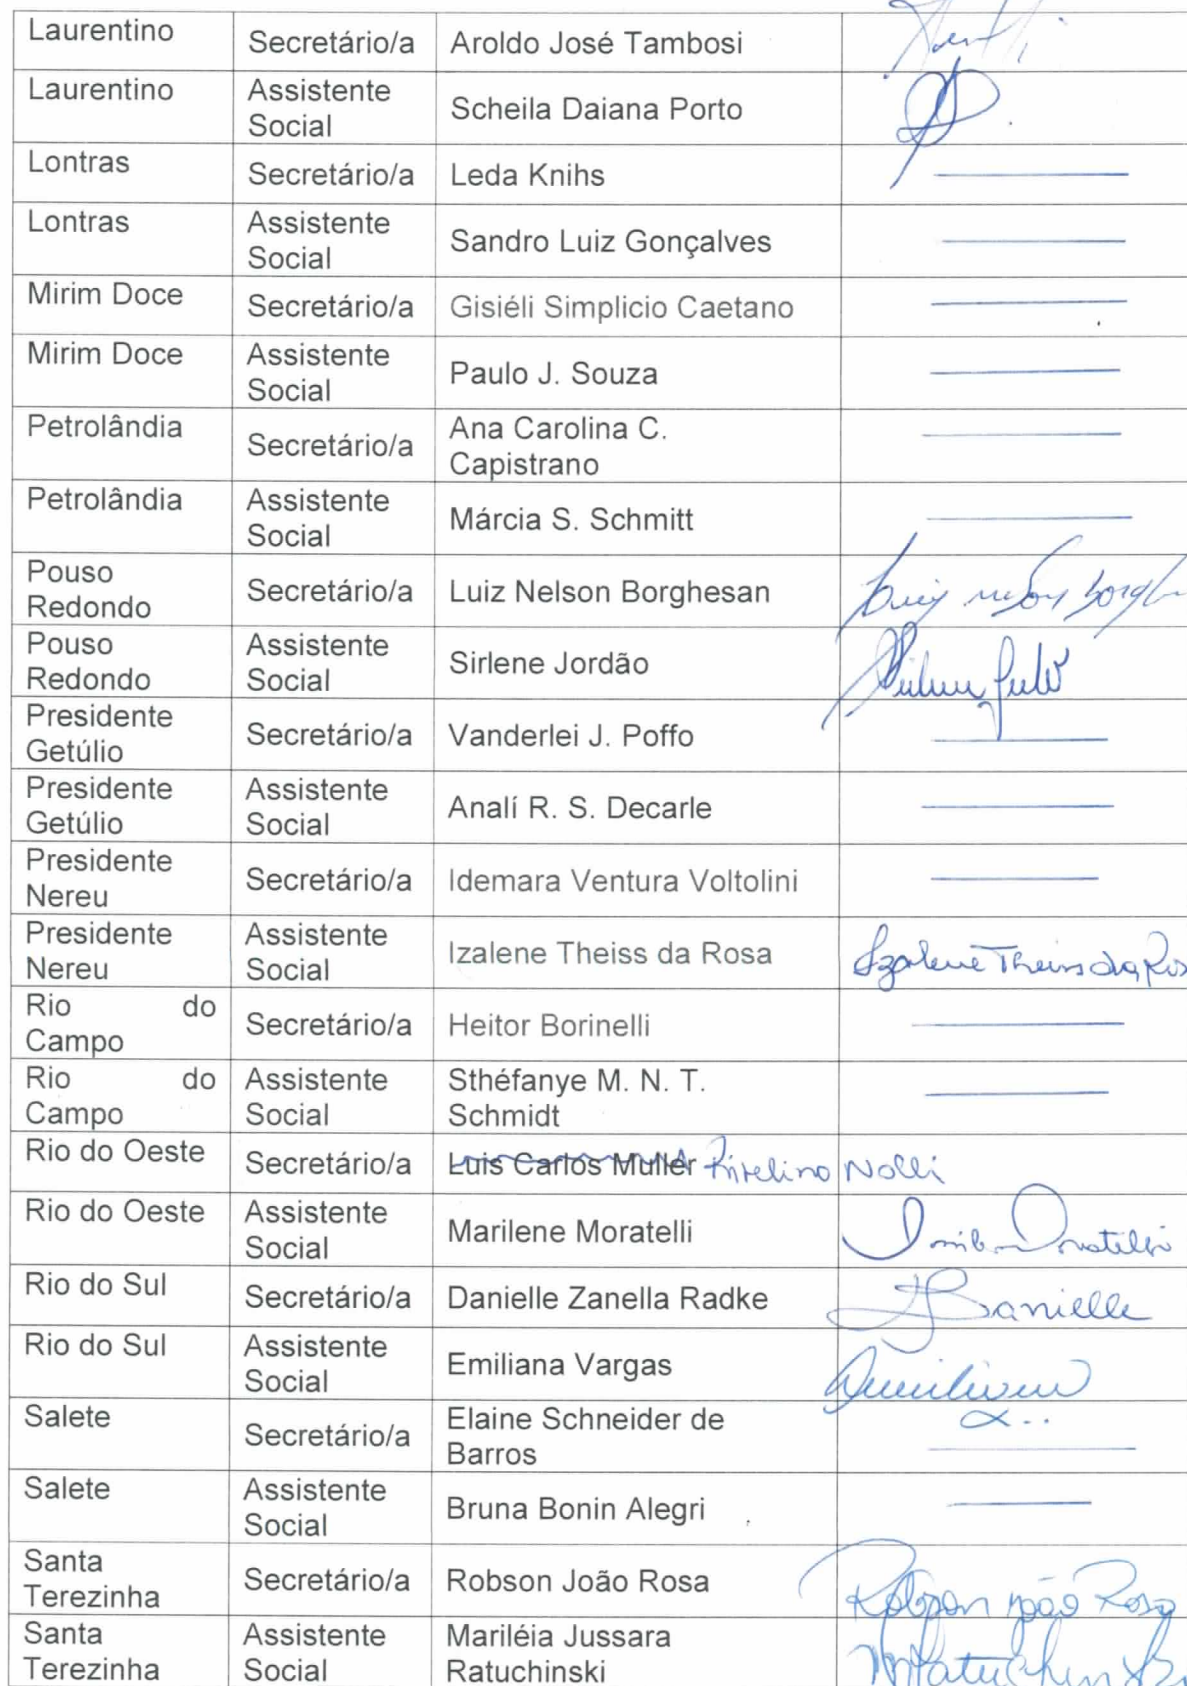 Laurentino Secretário/a Aroldo José Tambosi
Laurentino Assistente Social Scheila Daiana Porto
Lontras Secretário/a Leda Knihs
Lontras Assistente Social Sandro Luiz Gonçalves
Mirim Doce Secretário/a Gisiéli Simplicio Caetano
Mirim Doce Assistente Social Paulo J. Souza
Petrolândia Secretário/a Ana Carolina C. Capistrano
Petrolândia Assistente Social Márcia S. Schmitt
Pouso Redondo Secretário/a Luiz Nelson Borghesan
Pouso Redondo Assistente Social Sirlene Jordão
Presidente Getúlio Secretário/a Vanderlei J. Poffo
Presidente Getúlio Assistente Social Analí R. S. Decarle
Presidente Nereu Secretário/a Idemara Ventura Voltolini
Presidente Nereu Assistente Social Izalene Theiss da Rosa Izalene Theiss da Ros
Rio do Campo Secretário/a Heitor Borinelli
Rio do Campo Assistente Social Sthéfanye M. N. T. Schmidt
Rio do Oeste Secretário/a Luis Carlos Muller Rivelino Nolli
Rio do Oeste Assistente Social Marilene Moratelli
Rio do Sul Secretário/a Danielle Zanella Radke Danielle
Rio do Sul Assistente Social Emiliana Vargas
Salete Secretário/a Elaine Schneider de Barros
Salete Assistente Social Bruna Bonin Alegri
Santa Terezinha Secretário/a Robson João Rosa Robson João Rosa
Santa Terezinha Assistente Social Mariléia Jussara Ratuchinski